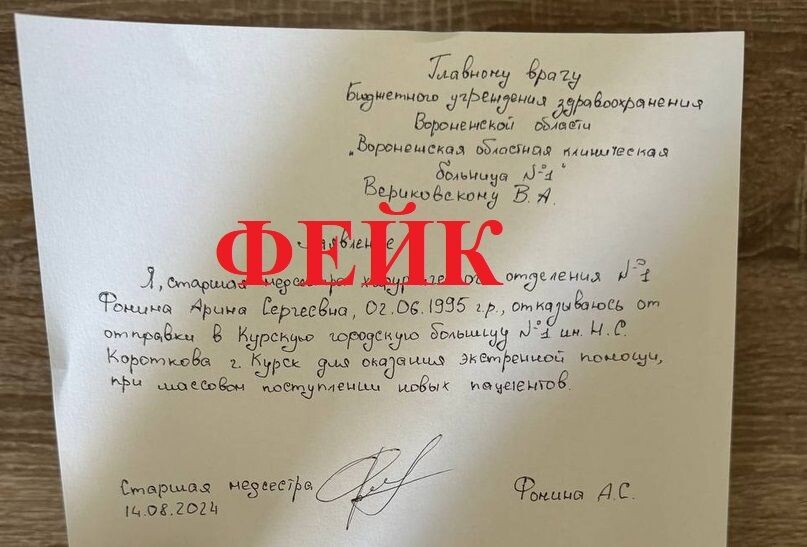 Главному врачу
Бюджетного учреждения здравоохранения
Воронежской области
„Воронежская областная клиническая
больница №1"
Вериковскому В.А.
ФЕЙК
Заявление
Я, старшая медсестра хирургического отделения №1
Фонина Арина Сергеевна, 02.06.1995 г.р., отказываюсь от
отправки в Курскую городскую больницу №1 им. Н.С.
Короткова г. Курск для оказания экстренной помощи,
при массовом поступлении новых пациентов.
Старшая медсестра
Фонина А.С.
14.08.2024